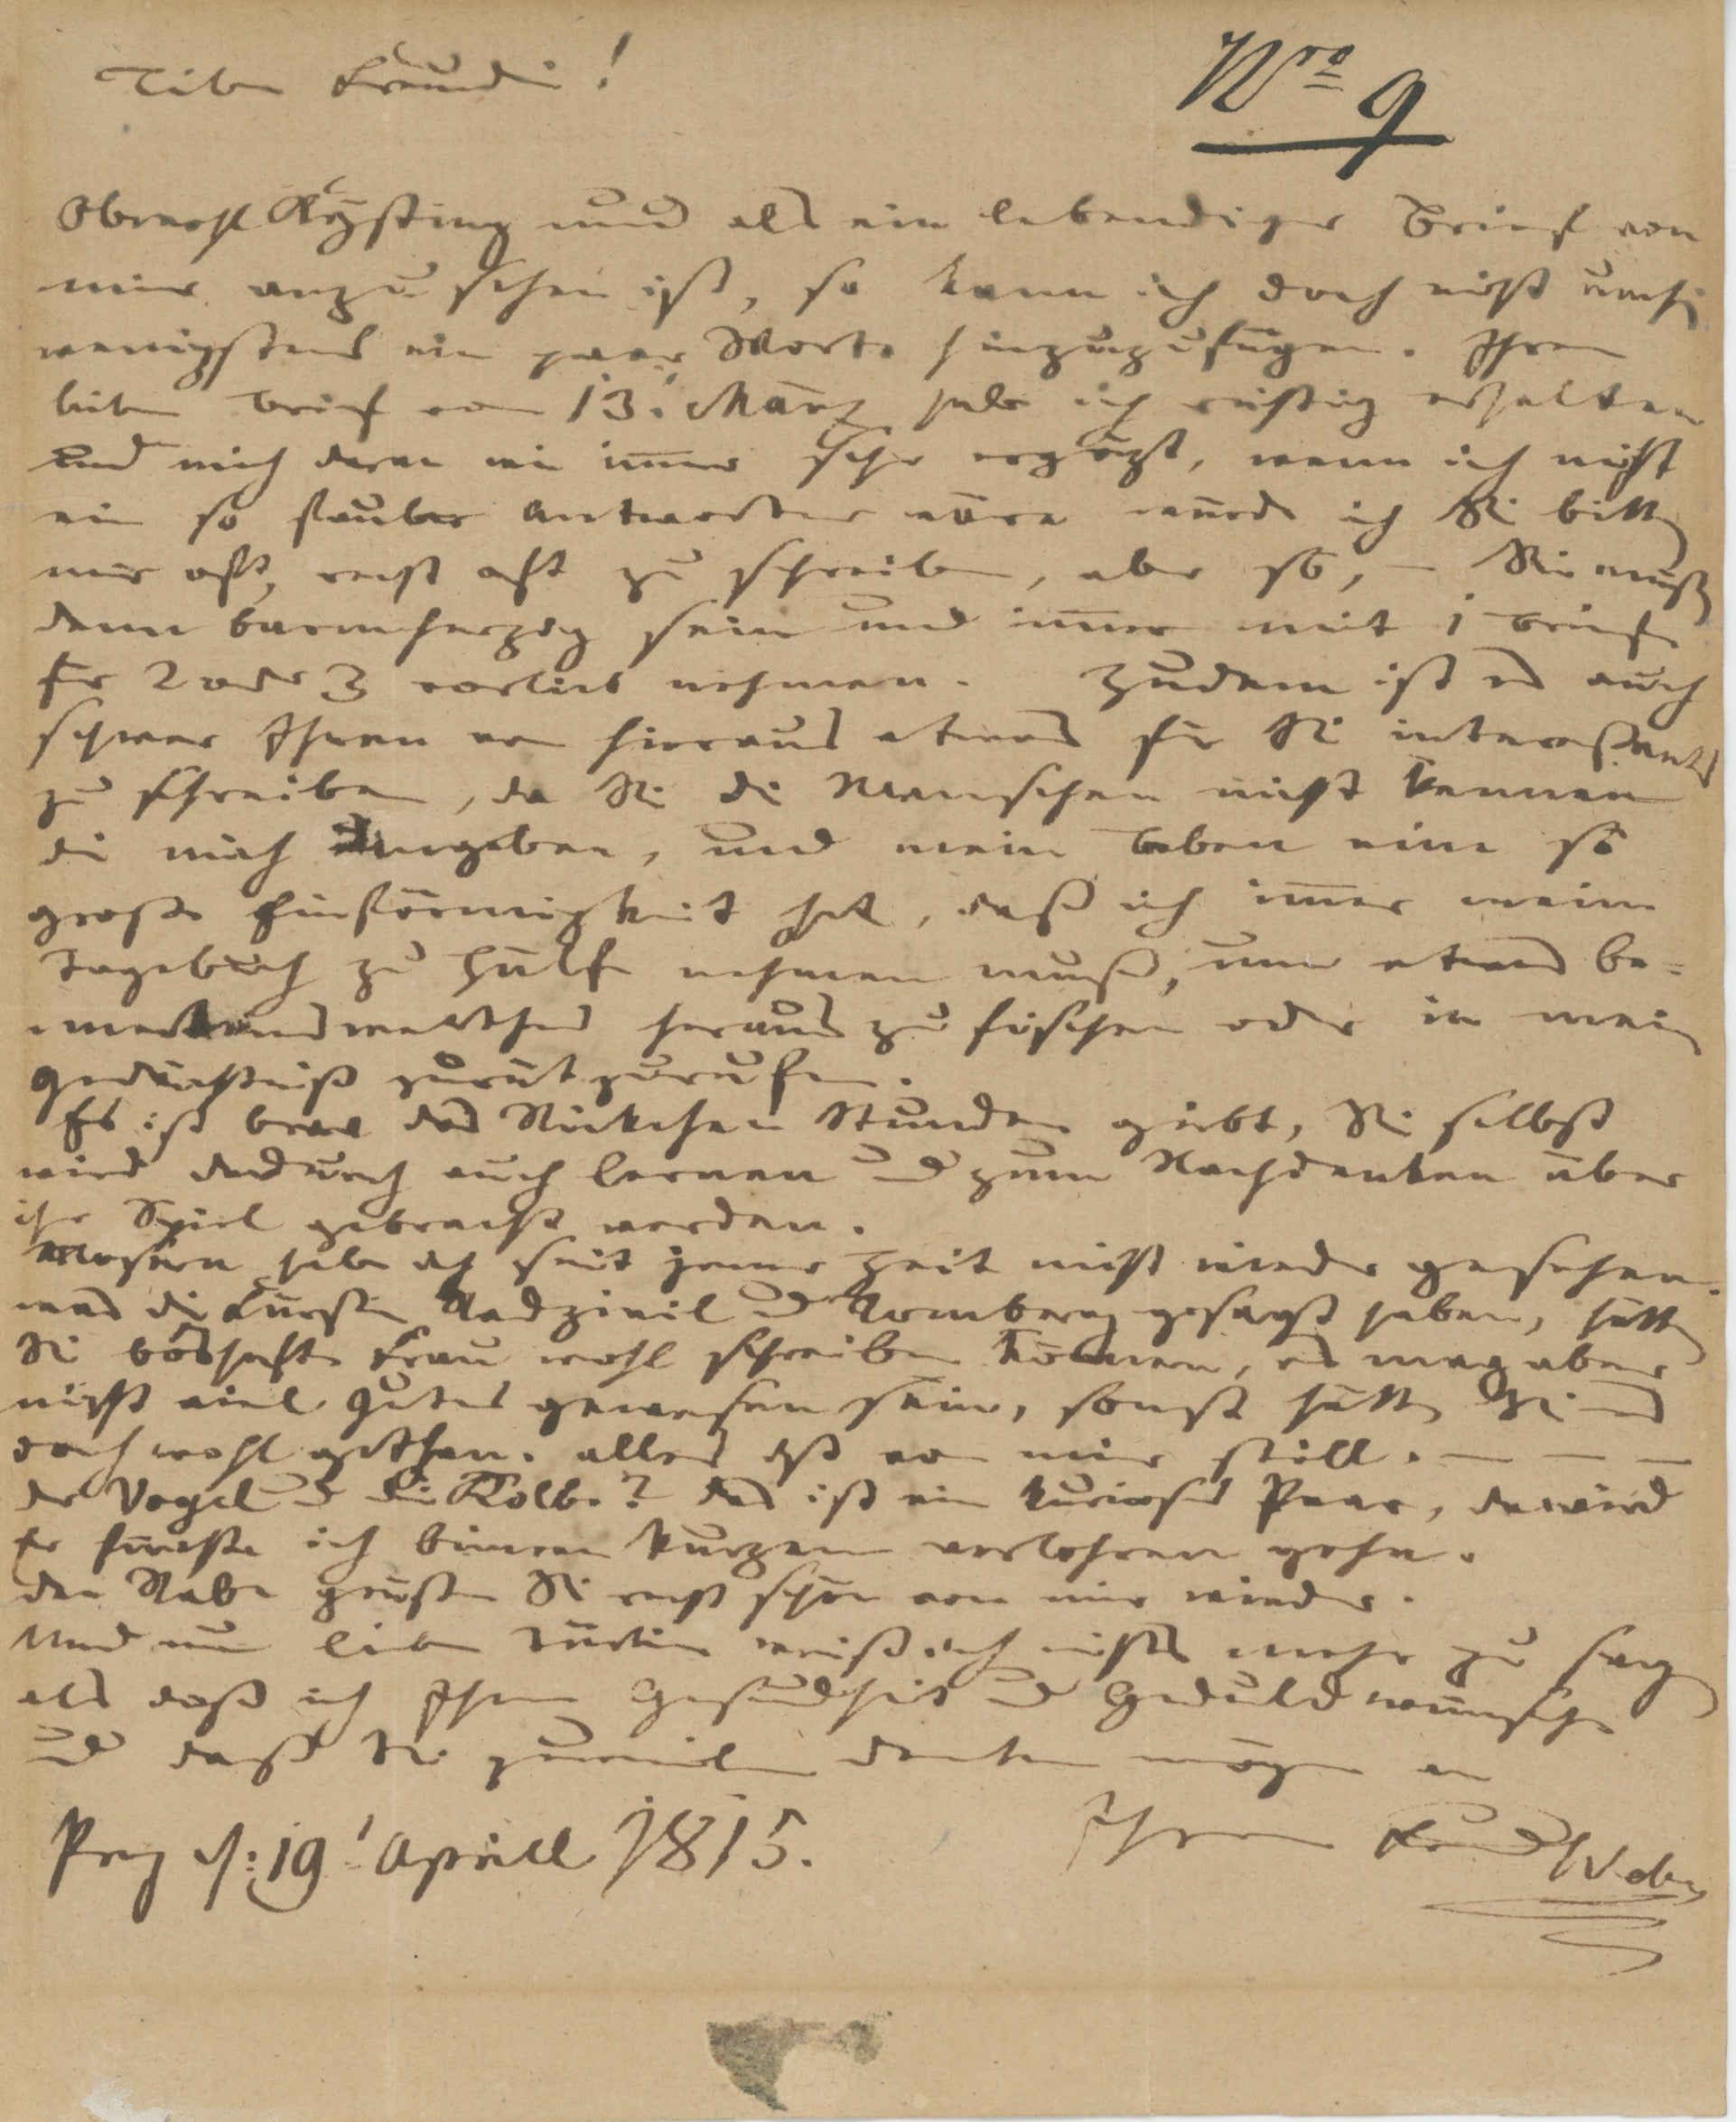 Liebe Freundin!
Nro 9
Obwohl Kysting nun als ein lebendiger Brief von
mir anzusehen ist, so kann ich doch nicht umhin
wenigstens ein paar Worte hinzuzufügen. Ihren
lieben Brief vom 13t März habe ich richtig erhalten
und mich daran wie immer sehr ergözt, wenn ich nicht
ein so sauber Antworter wäre würde ich Sie bitten
mir oft, recht oft zu schreiben, aber so, – Sie müßen
denn barmherzig sein und immer mit 1 Briefe
für 2 oder 3 vorlieb nehmen. Zudem ist es auch
schwer Ihnen von hieraus etwas für Sie interessantes
zu schreiben, da Sie die Menschen nicht kennen
die mich umgeben, und mein Leben eine so
große Einförmigkeit hat, daß ich immer mein
Tagebuch zu Hülfe nehmen muß, um etwas be=
merkenswerthes heraus zu fischen oder in mein
Gedächtniß zurükzurufen.
Es ist brav das Rikchen Stunden giebt, Sie selbst
wird dadurch auch lernen und zum Nachdenken über
ihr Spiel gebracht werden.
habe ich seit jener Zeit nicht wieder gesehen.
was die Fürstin Radzivil und Romberg gesagt haben, hätten
Sie boshafte Frau wohl schreiben können, es mag aber
nicht viel Gutes gewesen sein, sonst hätten Sie es
doch wohl gethan. alles ist von mir still. — — —
der Vogel und die Kolbe? das ist ein kurioses Paar, da wird
er fürchte ich binnen kurzem verlohren gehn.
den Rabe grüßen Sie recht schön von mir wieder.
Und nun liebe Türkin weiß ich nichts mehr zu sagen
als daß ich Ihnen Gesundheit und Geduld wünsche
und daß Sie zuweilen denken mögen an
Prag d: 19t Aprill 1815.
Ihren Freund Weber